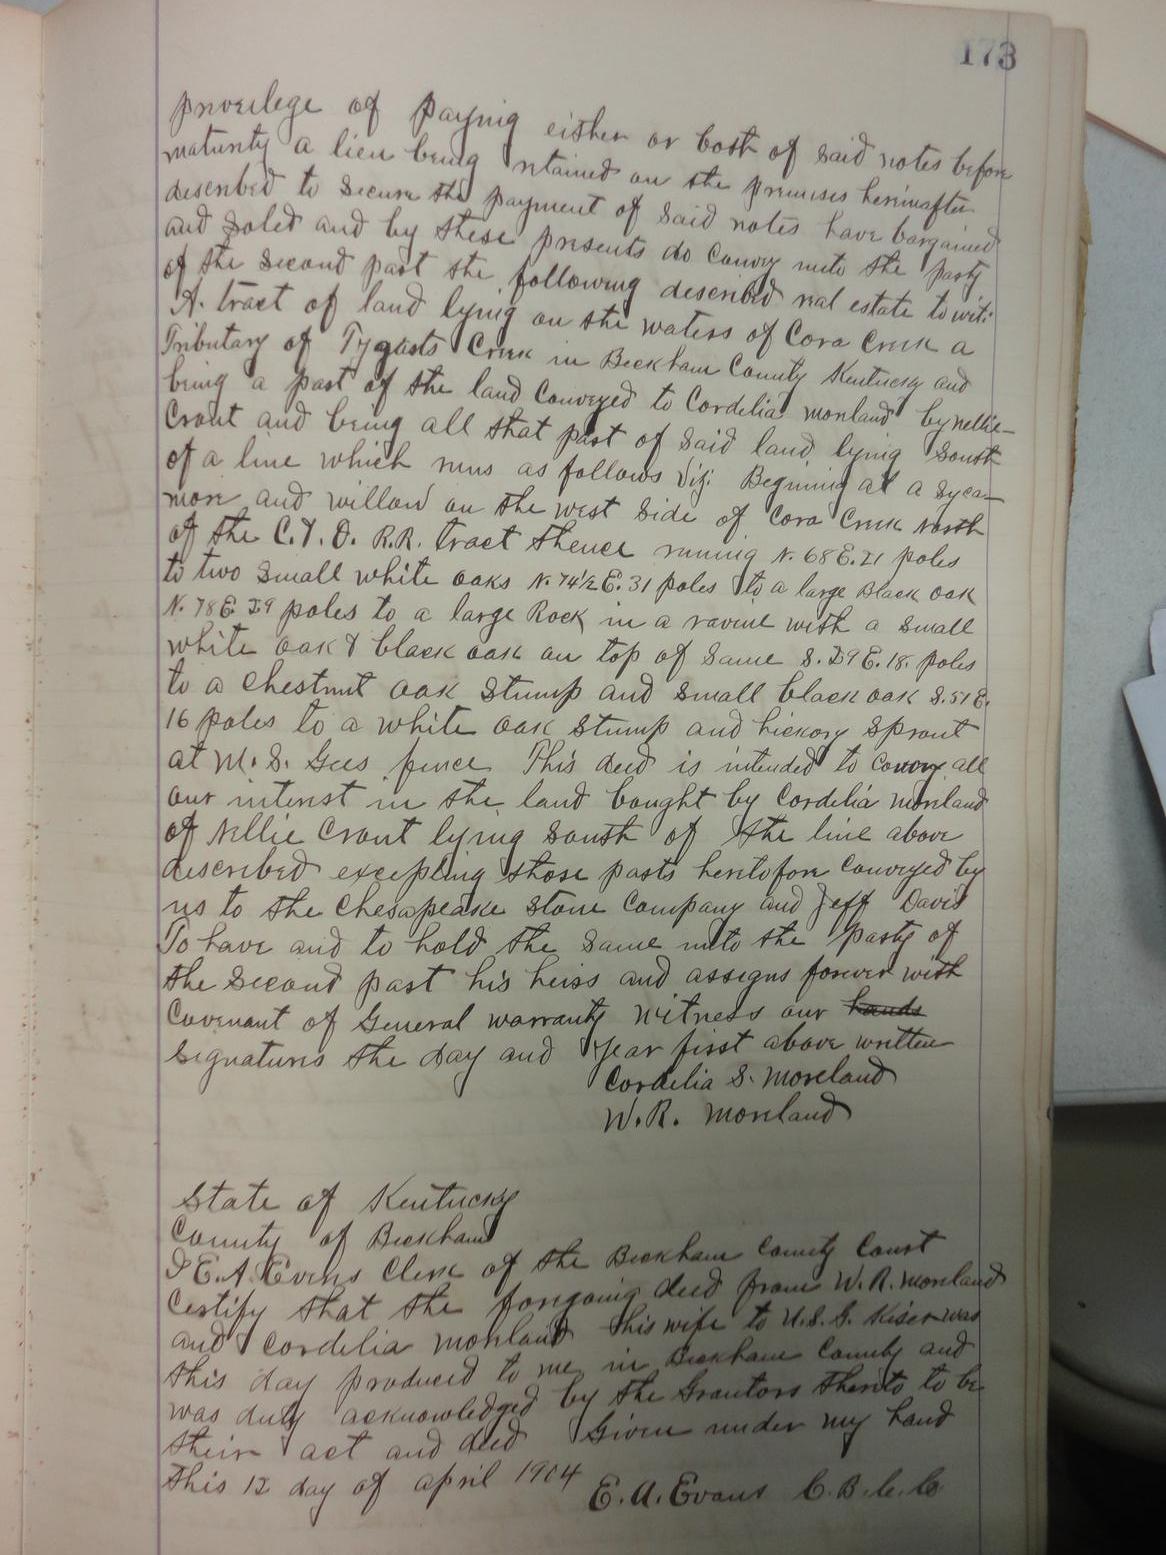 173
privilege of paying either or both of said notes before
maturity a lien being retained on the premises herinafter
described to secure the payment of said notes have bargained
and soled and by these presents do convey unto the party
of the second part the following described real estate to wit:
A. tract of land lying on the waters of Cora Creek a
Tributary of Tygarts Creek in Beckham County Kentucky and
being a part of the land conveyed to Cordelia Moreland by Nellie
Crout and being all that part of said land lying South
of a line which runs as follows viz: Begining at a syca-
more and willow on the west side of Cora Creek North
of the C. & O. R.R. tract thence running N. 68 E. 21 poles
to two small white oaks N. 74 1/2 E. 31 poles to a large Black oak
N. 78 E. 29 poles to a large Rock in a ravine with a small
white oak & black oak on top of same S. 29 E. 18. poles
to a chestnut oak stump and small black oak S. 51 E.
16 poles to a white oak stump and hickory sprout
at M. S. Gees fence This deed is intended to convey all
our interest in the land bought by Cordelia Moreland
of Nellie Crout lying South of the line above
described excepting those parts heretofore conveyed by
us to the Chesapeake Stone Company and Jeff David
To have and to hold the same unto the party of
the second part his heirs and assigns forever with
Covenant of General warranty Witness our hands
Signatures the day and year first above written
Cordelia S. Moreland
W. R. Moreland
State of Kentucky
County of Beckham
I E. A. Evans Clerk of the Beckham County Court
Certify that the foregoing deed from W. R. Moreland
and Cordelia Moreland his wife to U. S. G. Kiser was
this day produced to me in Beckham County and
was duly acknowledged by the Grantors thereto to be
their act and deed Given under my hand
this 12 day of April 1904
E. A. Evans C. B. C. C.